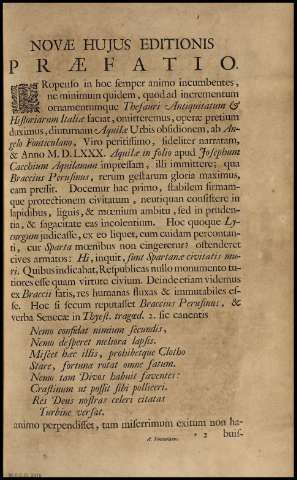 NOVÆ HUJUS EDITIONIS
PRÆFATIO.
PRopenso in hoc semper animo incumbentes,
ne minimum quidem, quod ad incrementum
ornamentumque Thesauri Antiquitatum &
Historiarum Italiæ faciat, omitteremus, operæ pretium
duximus, diuturnam Aquilæ Urbis obsidionem, ab An-
gelo Fonticulano, Viro peritissimo, fideliter narratam,
& Anno M. D. LXXX. Aquilæ in folio apud Josephum
Cacchium Aquilanum impressam, illi immittere; qua
Braccius Perusinus, rerum gestarum gloria maximus,
eam pressit. Docemur hac primo, stabilem firmam-
que protectionem civitatum, neutiquam consistere in
lapidibus, lignis, & mœnium ambitu, sed in pruden-
tia, & sagacitate eas incolentium. Hoc quoque Ly-
curgum judicasse, ex eo liquet, cum cuidam percontan-
ti, cur Sparta mœnibus non cingeretur? ostenderet
cives armatos: Hi, inquit, sunt Spartanæ civitatis mu-
ri. Quibus indicabat, Respublicas nullo monumento tu-
tiores esse quam virtute civium. Deinde etiam videmus
ex Braccii fatis, res humanas fluxas & immutabiles ef-
se. Hoc si secum reputasset Braccius Perusinus, &
verba Senecæ in Thyest. tragœd. 2. sic canentis
Nemo confidat nimium secundis,
Nemo desperet meliora lapsis.
Miscet hæc illis, prohibetque Clotho
Stare, fortuna rotat omne fatum.
Nemo tam Divos habuit faventes:
Crastinum ut possit sibi polliceri.
Res Deus nostras celeri citatas
Turbine versat.
animo perpendisset, tam miserrimum exitum non ha-
* 2 buis-